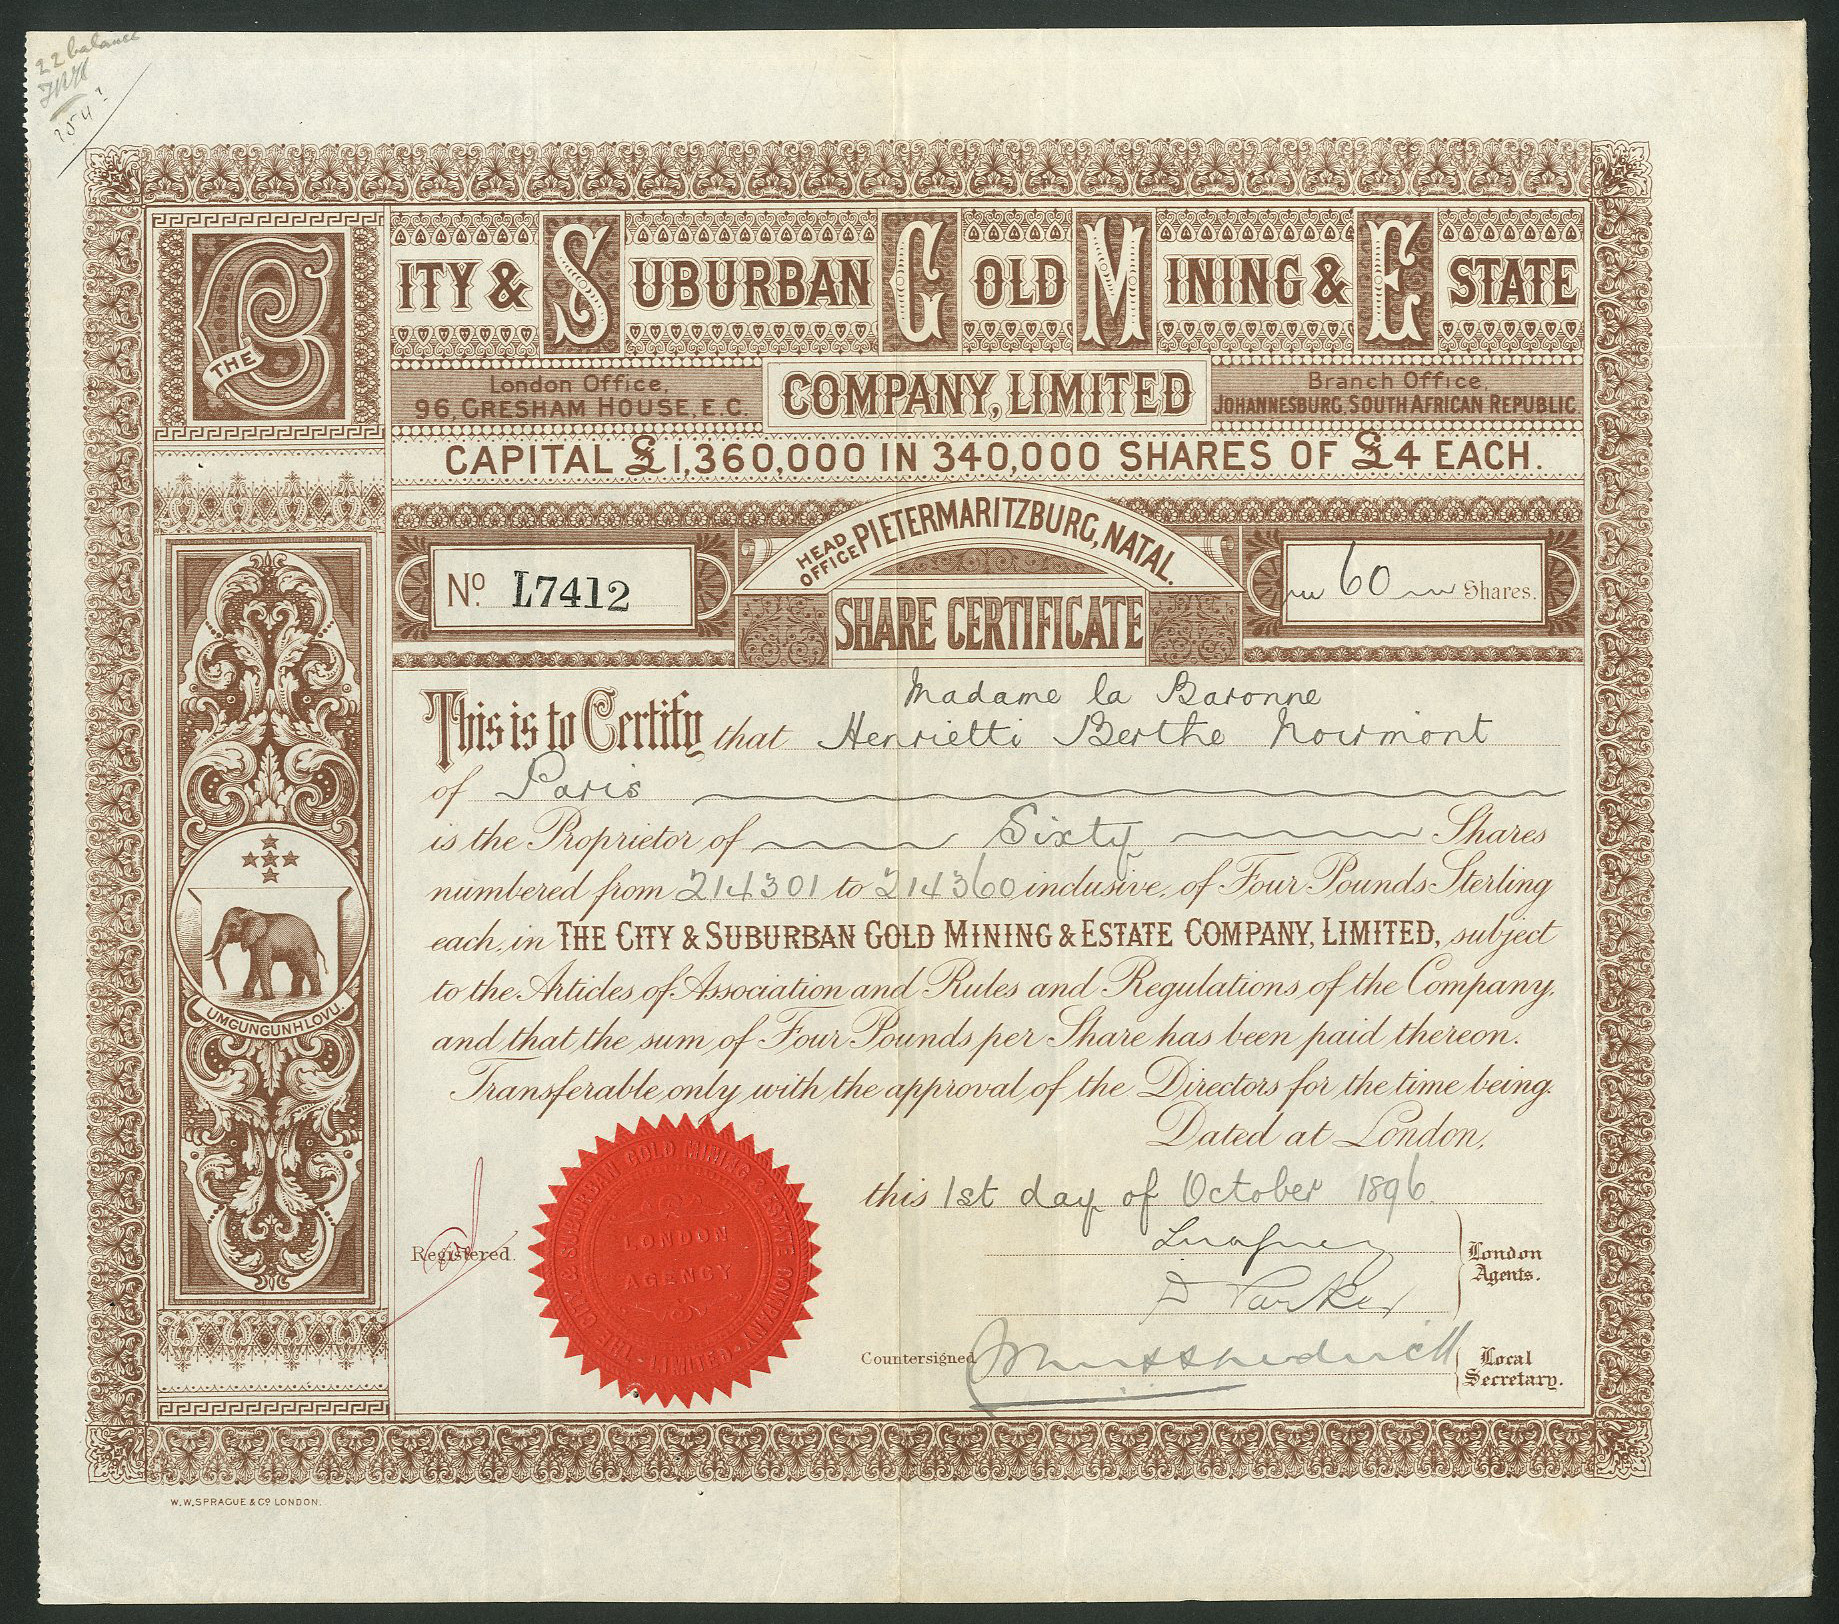 22 balance
THE CITY & SUBURBAN GOLD MINING & ESTATE
COMPANY, LIMITED
London Office,
96, GRESHAM HOUSE, E.C.
Branch Office,
JOHANNESBURG, SOUTH AFRICAN REPUBLIC
CAPITAL £1,360,000 IN 340,000 SHARES OF £4 EACH.
HEAD OFFICE PIETERMARITZBURG, NATAL.
No. L7412
SHARE CERTIFICATE
60 Shares.
Madame la Baronne
This is to Certify that Henrietti Berthe Nourmont
of Paris
is the Proprietor of Sixty Shares
numbered from 214301 to 214360 inclusive, of Four Pounds Sterling
each, in THE CITY & SUBURBAN GOLD MINING & ESTATE COMPANY, LIMITED, subject
to the Articles of Association and Rules and Regulations of the Company,
and that the sum of Four Pounds per Share has been paid thereon.
Transferable only with the approval of the Directors for the time being.
Dated at London,
this 1st day of October 1896.
UMGUNGUNHLOVU.
Registered.
THE CITY & SUBURBAN GOLD MINING & ESTATE COMPANY LIMITED
LONDON
AGENCY
D Parker
London
Agents.
Countersigned
Local
Secretary.
W.W. SPRAGUE & CO LONDON.